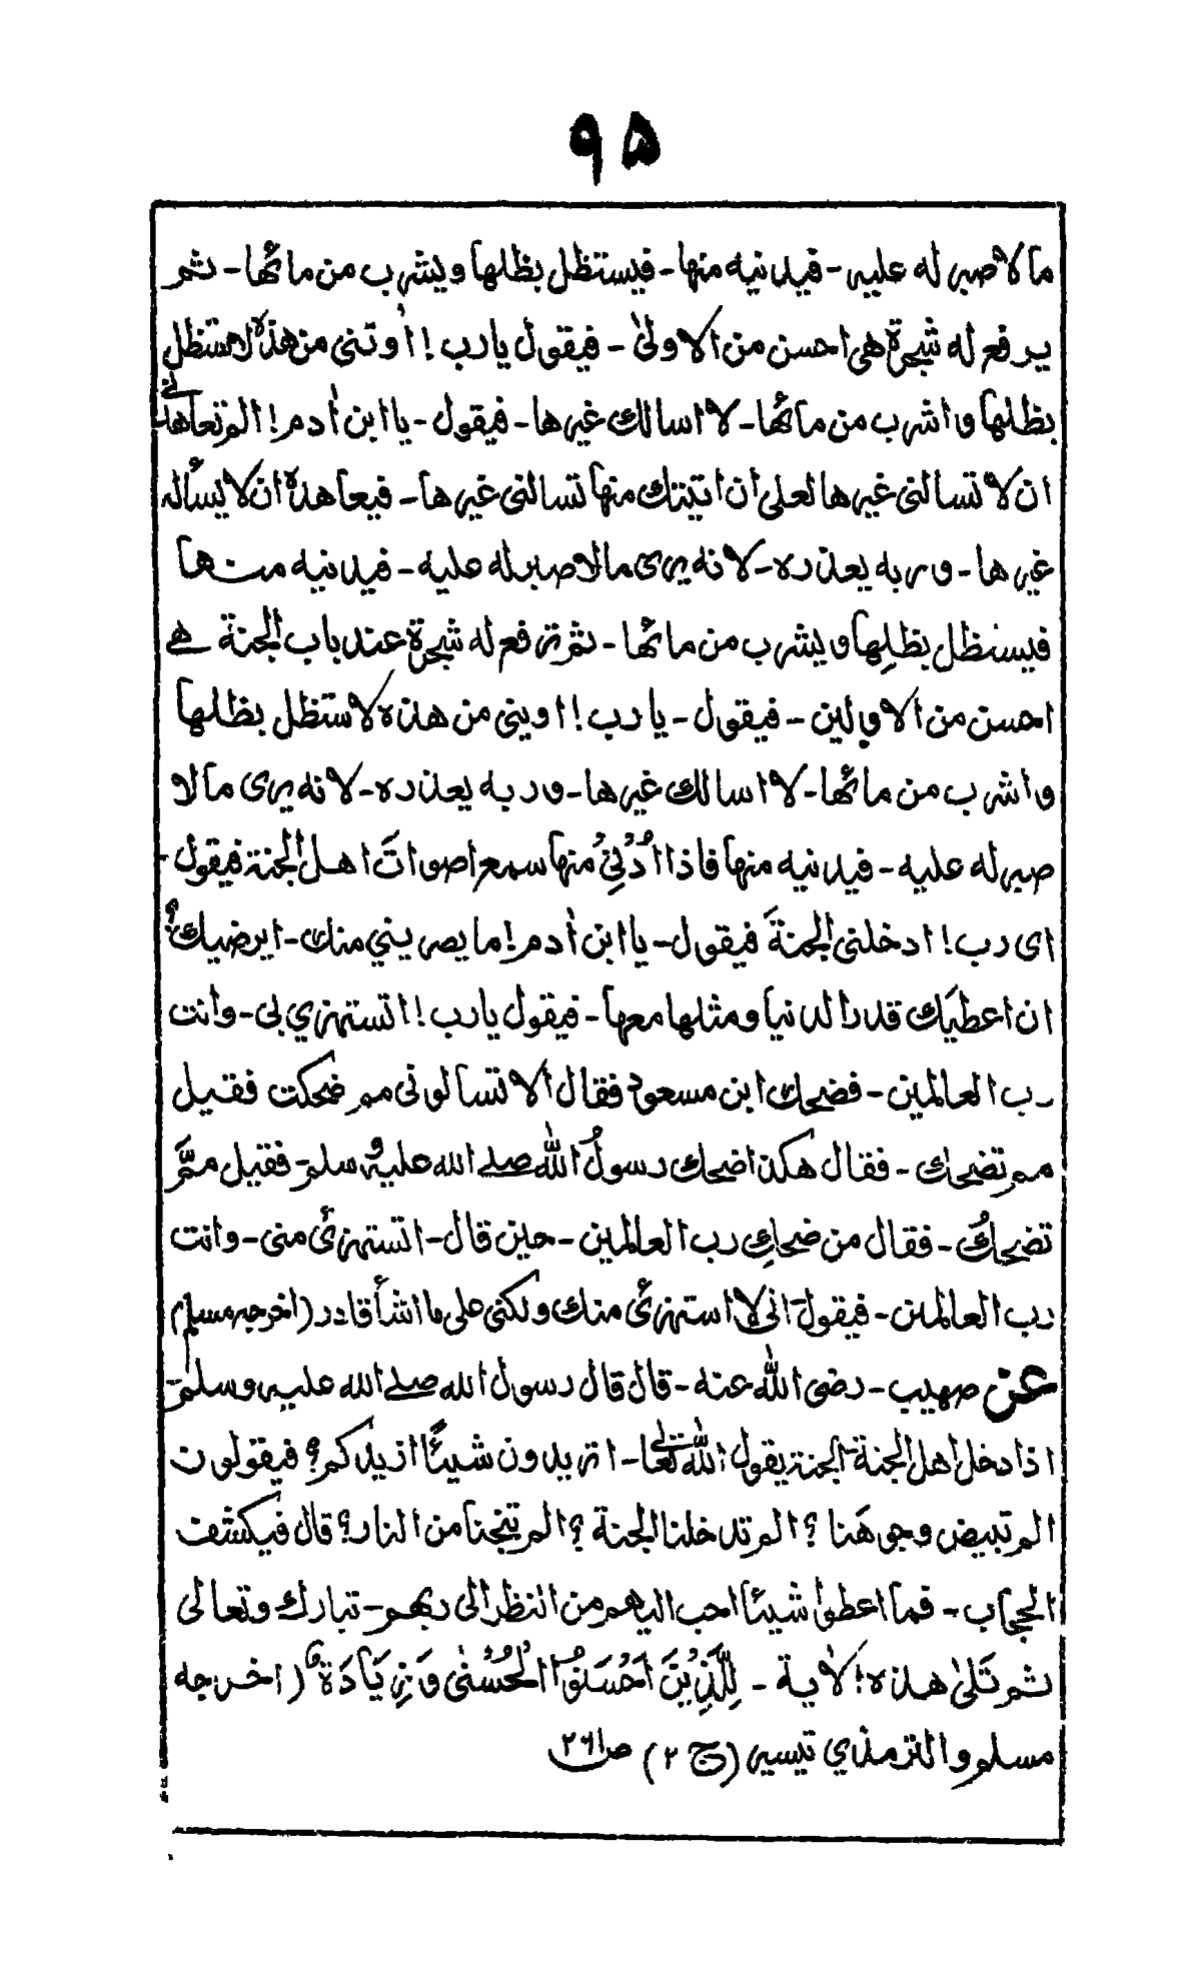 ۹۵
ما لا صبر له عليه - فيدنيه منها - فيستظل بظلها ويشرب من مائها - ثم
يرفع له شجرة هى احسن من الاولىٰ - فيقول يا رب ! أوتنى من هذه لاستظل
بظلها واشرب من مائها - لا اسالك غيرها - فيقول - يا ابن اٰدم ! الم تعاهدنى
ان لا تسالنى غيرها لعلى ان اتيتك منها تسالنى غيرها - فيعاهدهٗ ان لا يسأله
غيرها - وربه يعذره - لانه يرى مالا صبر له عليه - فيدنيه منها
فيستظل بظلِها ويشرب من مائها - ثم ترفع له شجرة عند باب الجنة هے
احسن من الاولين - فيقول - يا رب ! اوينى من هذه لاستظل بظلها
واشرب من مائها - لا اسالك غيرها - وربه يعذره - لانه يرى مالا
صبر له عليه - فيدنيه منها فاذا اُدْنِىْ منها سمع اصواتَ اهل الجنة فيقول -
اى رب ! ادخلنى الجنةَ فيقول - يا ابن اٰدم ! ما يصرينى منك - ايرضيك
ان اعطيَك قدر الدنيا ومثلها معها - فيقول يا رب ! اتستهزي بى - وانت
رب العالمين - فضحك ابن مسعود فقال الا تسالونى مم ضحكت فقيل
مم تضحك - فقال هكذا ضحك رسولُ اللّٰه صلے الله عليه وسلم - فقيل ممَّ
تضحكُ - فقال من ضحكِ رب العالمين - حين قال - اتستهزئ منى - وانت
رب العالمين - فيقول انى لا استهزئ منك ولكنى على ما اشأ قادر (اخرجه مسلم)
عن صهيب - رضى اللّٰه عنه - قال قال رسول الله صلے الله عليه وسلم -
اذا دخل اهل الجنة الجنة يقول اللّٰه تعالى - اتريدون شيئًا ازيدكم ؟ فيقولون
الم تبيض وجوهَنا ؟ الم تدخلنا الجنة ؟ الم تنجنا من النار ؟ قال فيكشف
الحجاب - فما اعطوا شيئا احب اليهم من النظر الى ربهم - تبارك وتعالى
ثم تَلىٰ هذه الاٰية - لِلَّذِيْنَ اَحْسَنُوا الْحُسْنٰى وَزِيَادَة (اخرجه
مسلم والترمذي تيسير (ج ۲) ص ۲۶۱